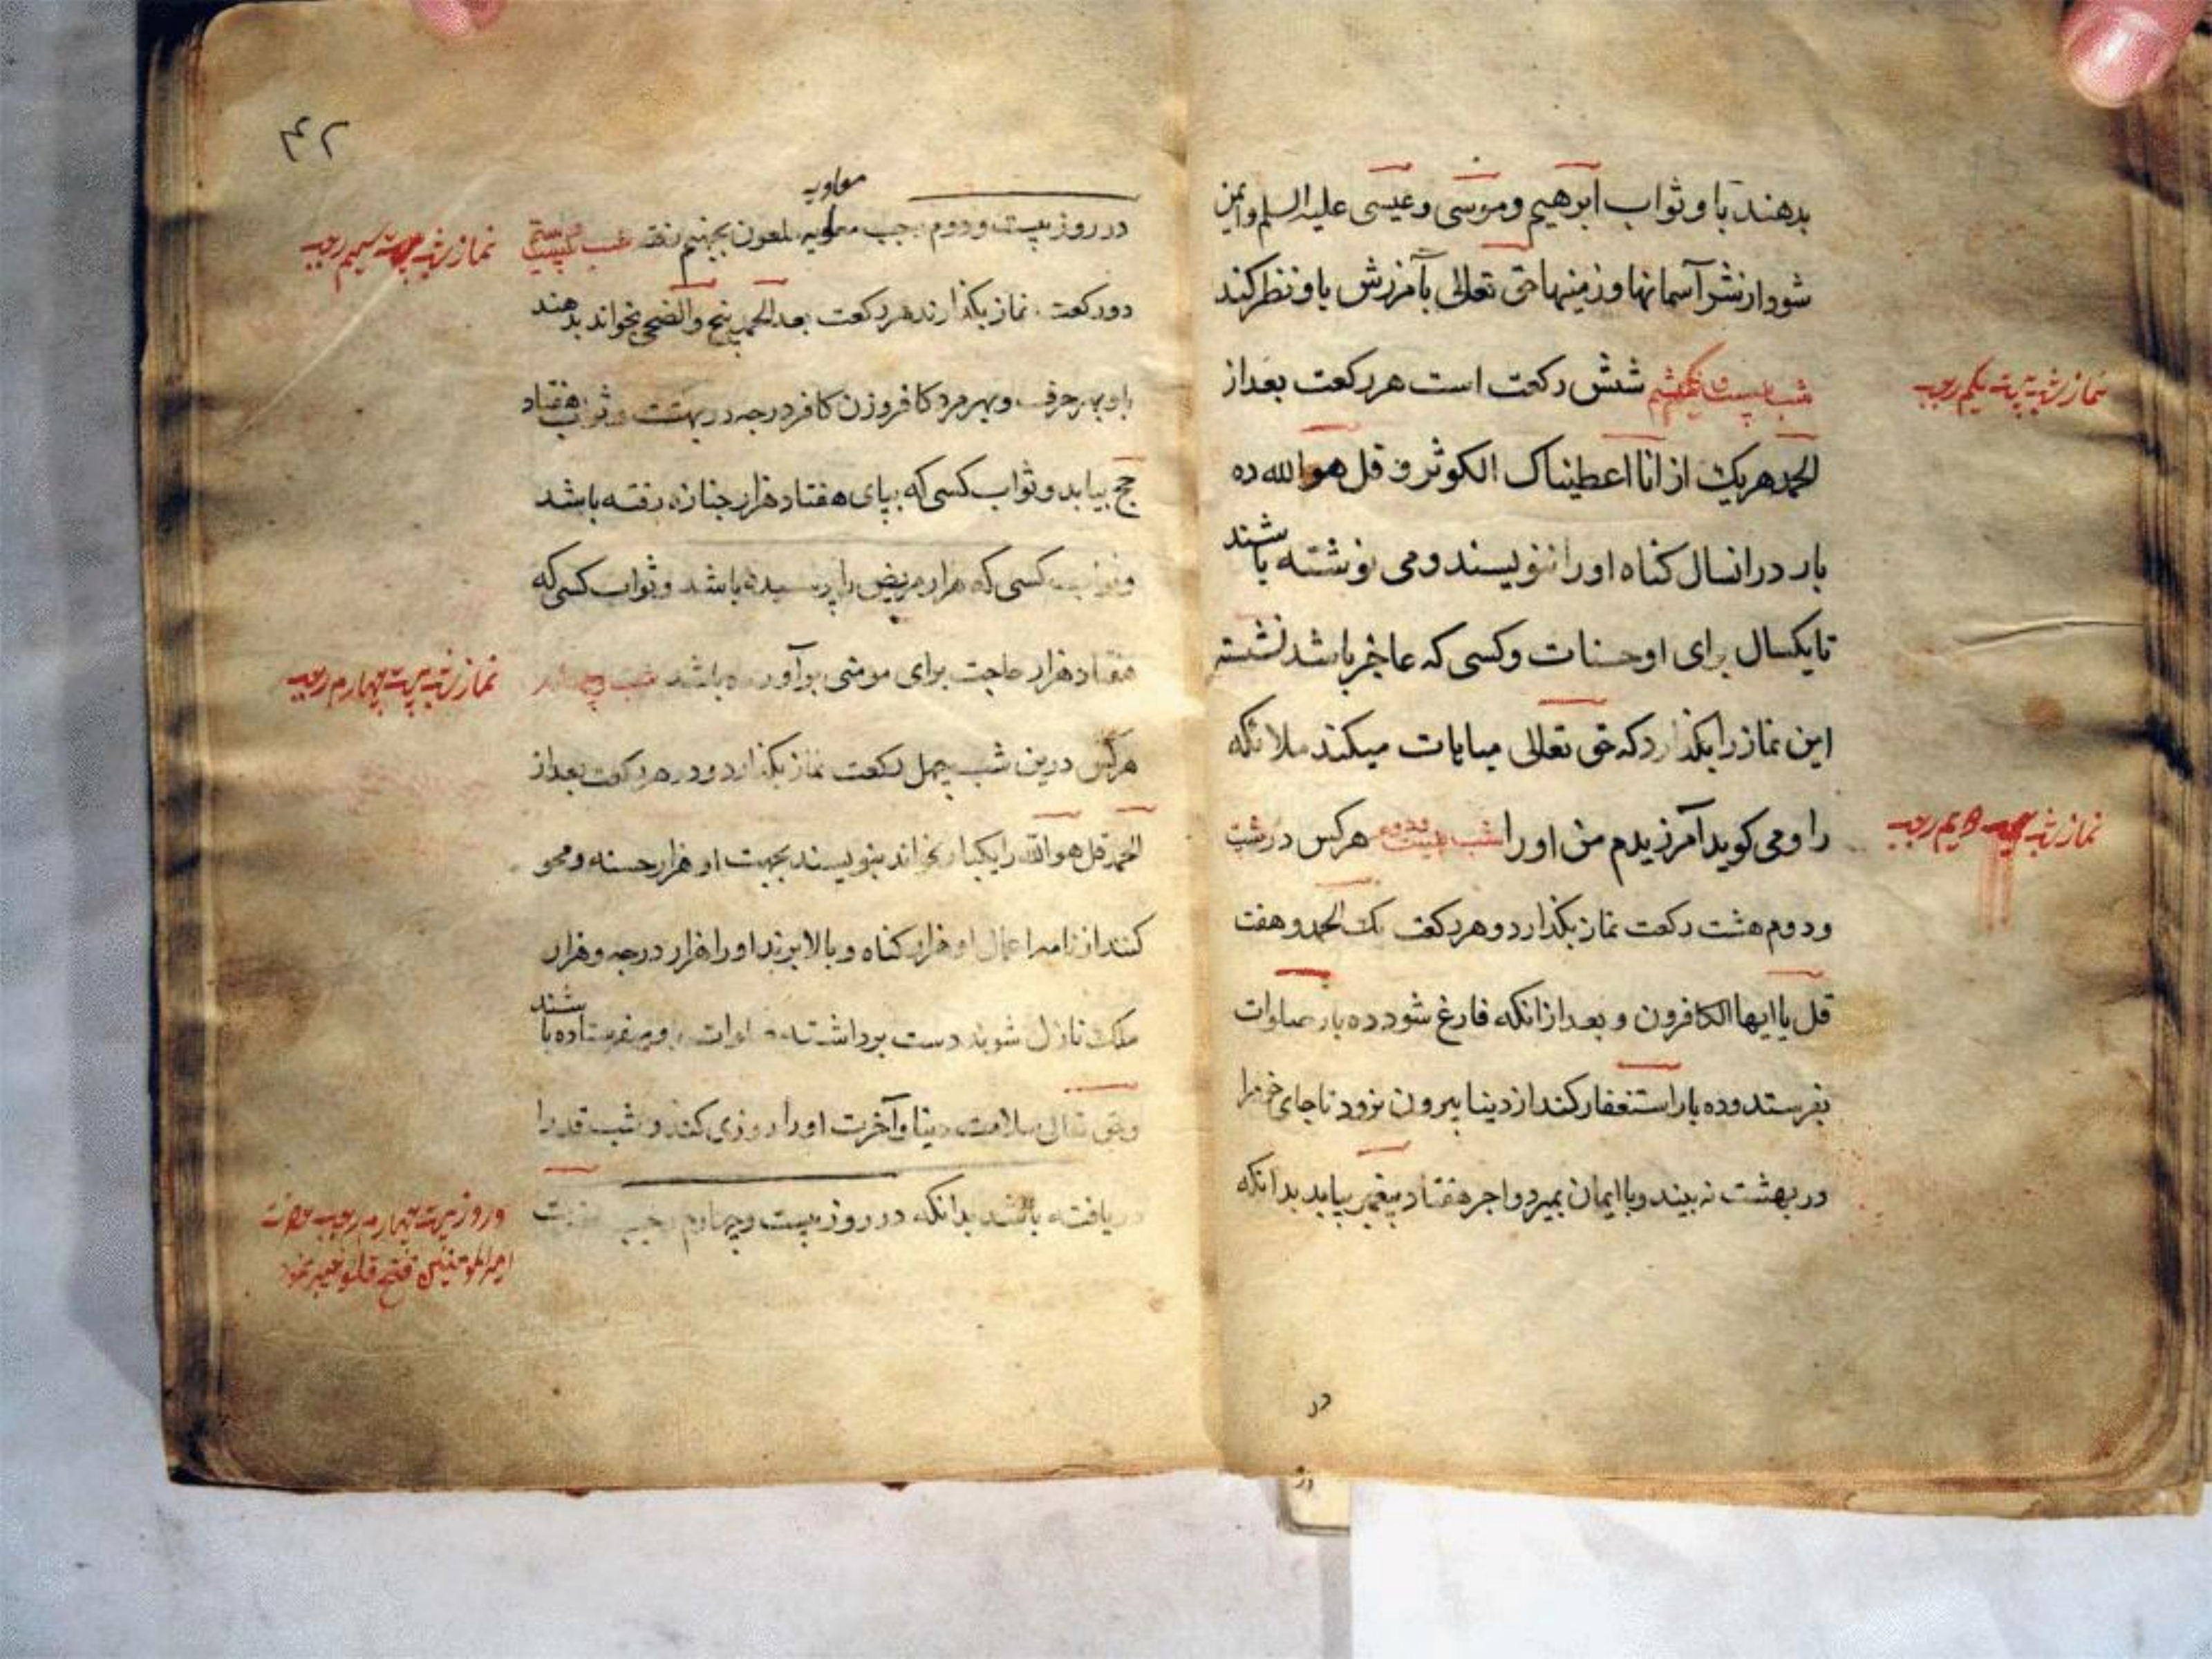 بدهند باو ثواب ابرهیم و موسی و عیسی علیه السلم و ایمن
شود از نشر آسمانها و زمینها حق تعالی بآمرزش باو نظر کند
نماز شب بیست یکم رجب
شب بیست و یکم شش رکعت است هر رکعت بعد از
الحمد هریک از انا اعطیناک الکوثر و قل هو الله ده
بار در انسال کناه او را ننویسند و می نوشته باشند
تا یکسال برای او حسنات و کسی که عاجز باشد نشسته
این نماز را بکذارد که حق تعالی مباهات میکند ملائکه
نماز شب رجب
را و می کوید آمرزیدم من او را شب بیست و دوم هرکس در شب
و دوم هشت رکعت نماز بکذارد و هر رکعت یک الحمد و هفت
قل یا ایها الکافرون و بعد از انکه فارغ شود ده بار صلوات
بفرستد و ده بار استغفار کند از دنیا بیرون نرود تا جای خود را
در بهشت نه بیند و با ایمان بمیرد و اجر هفتاد پیغمبر بیابد بدانکه
در
در
۴۲
معاویه
در روز بیست و دوم رجب معاویه ملعون بجهنم رفته شب
نماز شب رجب
دو رکعت نماز بکذارند هر رکعت بعد الحمد پنج والضحی بخواند بدهند
باو بهر حرف و بهر مرد کافر و زن کافر درجه در بهشت و ثواب هفتاد
حج بیابد و ثواب کسی که بپای هفتاد هزار جنازه رفته باشد
و ثواب کسی که هزار مریض را پرسیده باشد و ثواب کسی که
هفتاد هزار حاجت برای مومنی برآورده باشد شب
نماز شب بیست چهارم رجب
هرکس درین شب چهل رکعت نماز بکذارد و در هر رکعت بعد از
الحمد قل هو الله را یکبار بخواند بنویسند بجهت او هزار حسنه و محو
کنند از نامه اعمال او هزار کناه و بالا برند او را هزار درجه و هزار
ملک نازل شوند دست برداشته صلوات برو میفرستاده باشند
و حق تعالی سلامت دنیا و آخرت او را روزی کند و شب قدر را
دریافته باشد بدانکه در روز بیست و چهارم رجب
در روز بیست چهارم رجب حضرت
امیر المومنین فتح قلعه خیبر نمود